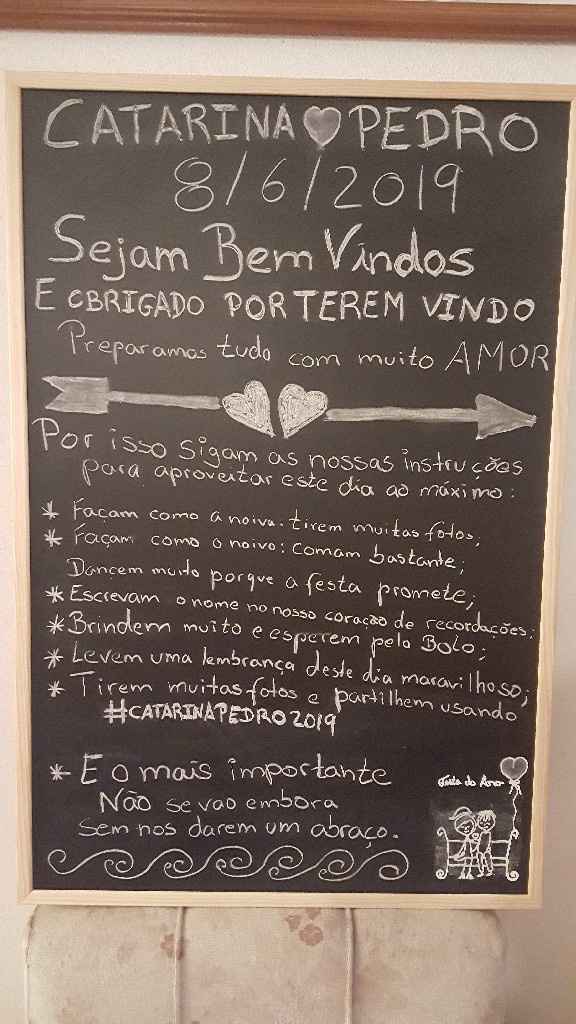 CATARINA PEDRO
8/6/2019
Sejam Bem Vindos
E OBRIGADO POR TEREM VINDO
Preparamos tudo com muito AMOR
Por isso sigam as nossas instruções
para aproveitar este dia ao máximo:
* Façam como a noiva: tirem muitas fotos;
* Façam como o noivo: comam bastante;
Dancem muito porque a festa promete;
* Escrevam o nome no nosso coração de recordações;
* Brindem muito e esperem pelo Bolo;
* Levem uma lembrança deste dia maravilhoso;
* Tirem muitas fotos e partilhem usando
#CATARINAPEDRO2019
* E o mais importante
Não se vao embora
Sem nos darem um abraço.
do Amor